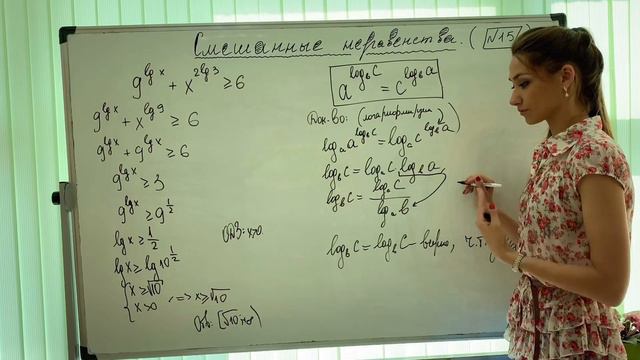 Смешанные неравенства. (№15)
9^{lg x} + x^{2lg3} ≥ 6
9^{lg x} + x^{lg9} ≥ 6
9^{lg x} + 9^{lg x} ≥ 6
9^{lg x} ≥ 3
9^{lg x} ≥ 9^{1/2}
lg x ≥ 1/2
ОДЗ: x>0
lg x ≥ lg 10^{1/2}
{ x ≥ √10
{ x > 0 , => x ≥ √10
Отв: [√10; +∞)
a^{log_b c} = c^{log_b a}
Док-во: (логарифмируем)
log_a a^{log_b c} = log_a c^{log_b a}
log_b c = log_a c · log_b a
log_b c = log_a c / log_a b
log_b c = log_b c – верно, ч.т.